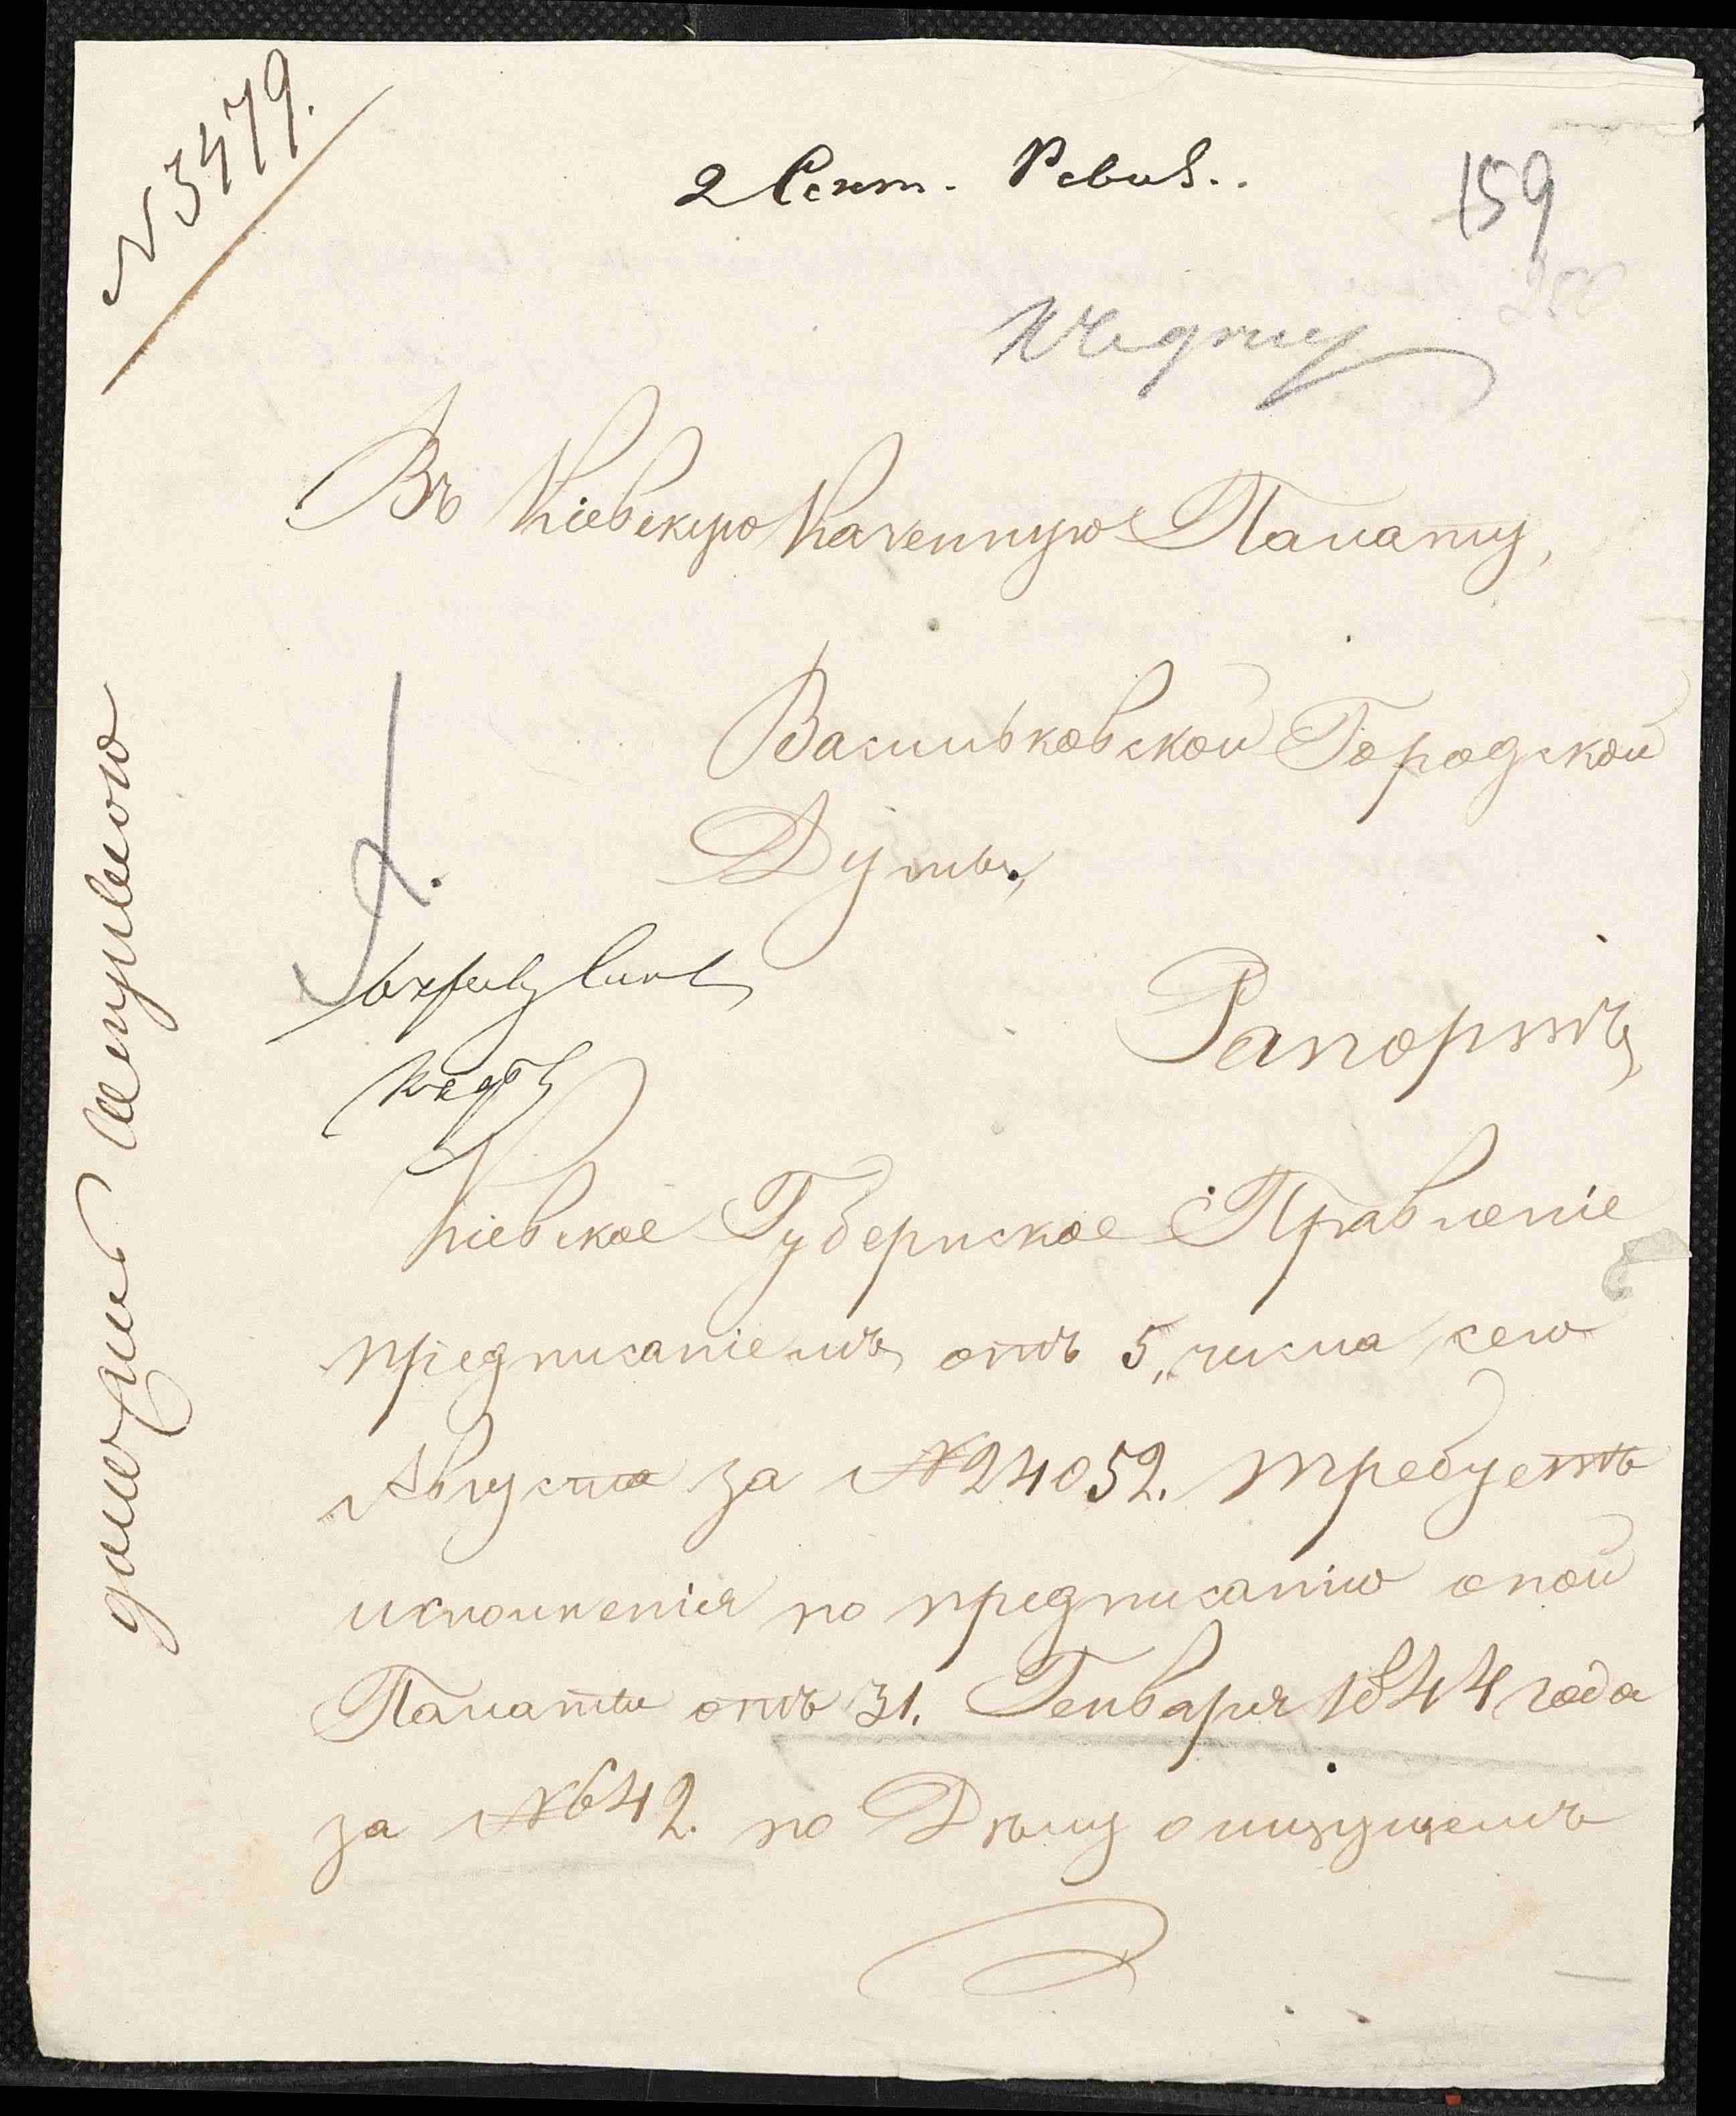 № 3479.
2 Сент. Ревиз..
159
Въ Кіевскую Казенную Палату,
Васильковской Городской
Думы,
Рапортъ,
Кіевское Губернское Правленіе
предписаніемъ отъ 5, числа сего
Августа за №24052. требуетъ
исполненія по предписанію оной
Палаты отъ 31. Генваря 1844 года
за №642. по Делу о ищущемъ